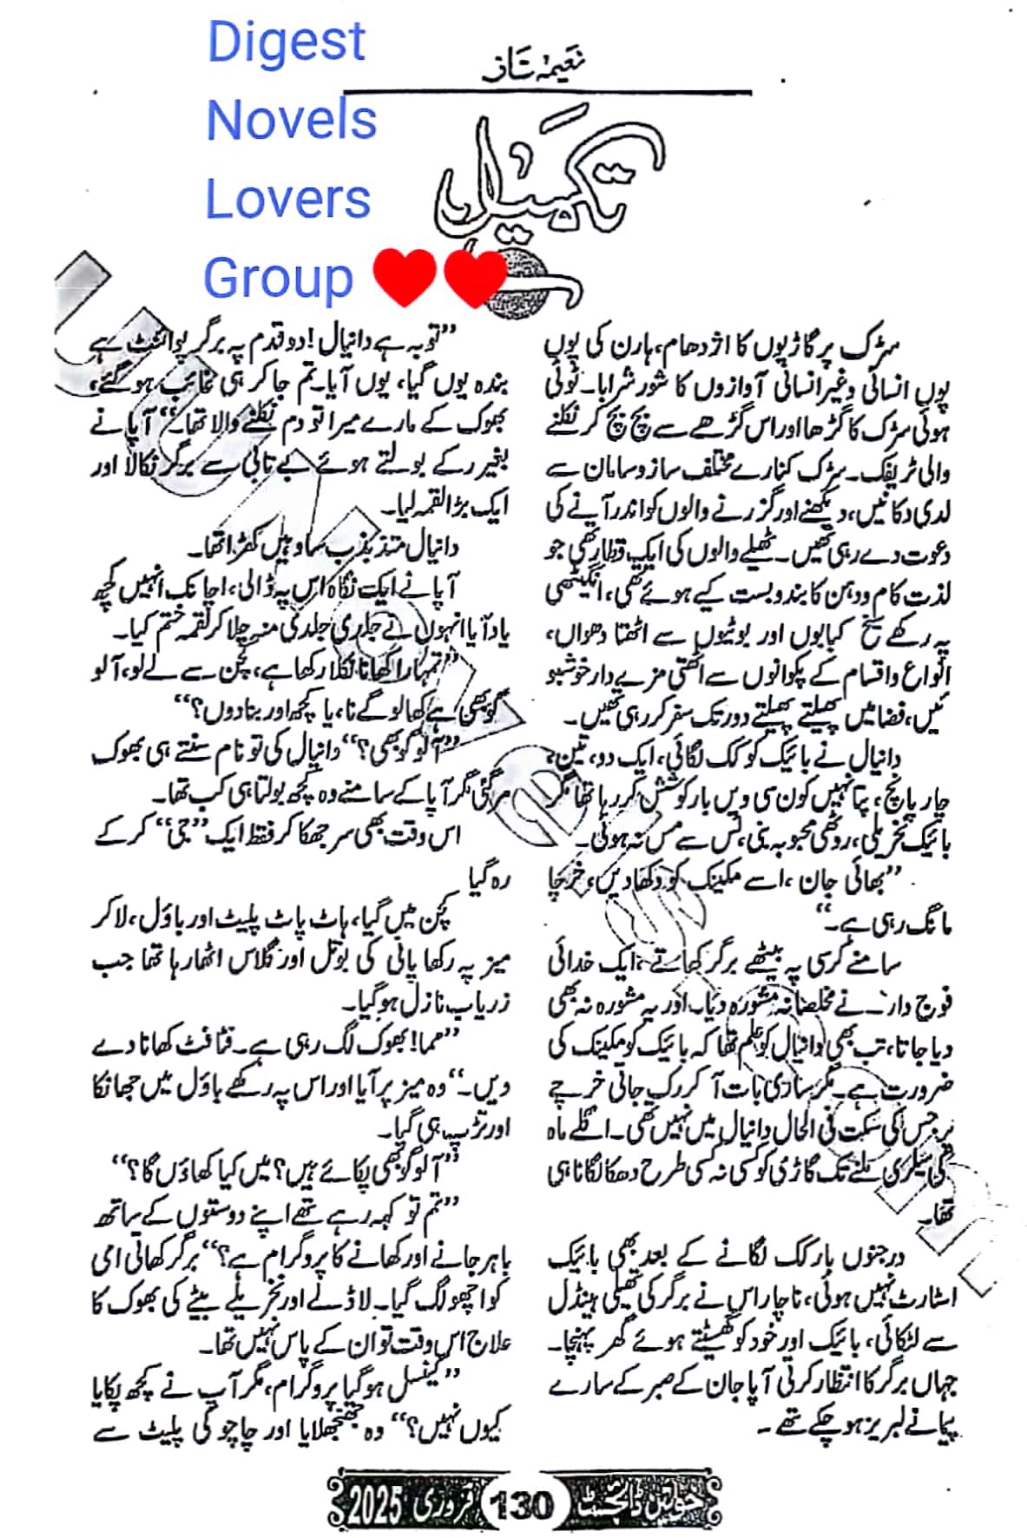 Digest
Novels
Lovers
Group ❤️❤️
نعیمہ ناز
تکمیل
سڑک پر گاڑیوں کا اژدھام، ہارن کی پوں
پوں انسانی وغیر انسانی آوازوں کا شور شرابا۔ ٹوٹی
ہوئی سڑک کا گڑھا اور اس گڑھے سے بچ بچ کر نکلنے
والی ٹریفک۔ سڑک کنارے مختلف ساز و سامان سے
لدی دکانیں، دیکھنے اور گزرنے والوں کو اندر آنے کی
دعوت دے رہی تھیں۔ ٹھیلے والوں کی ایک قطار تھی جو
لذت کام و دہن کا بندوبست کیے ہوئے تھی، انگیٹھی
پہ رکھے سیخ کبابوں اور بوٹیوں سے اٹھتا دھواں،
انواع و اقسام کے پکوانوں سے اٹھتی مزے دار خوشبو
ئیں، فضا میں پھیلتے پھیلتے دور تک سفر کر رہی تھیں۔
دانیال نے بائیک کو کک لگائی، ایک دو، تین،
چار پانچ، پتا نہیں کون سی ویں بار کوشش کر رہا تھا مگر
بائیک نخریلی، روٹھی محبوبہ بنی، ٹس سے مس نہ ہوئی۔
”بھائی جان، اسے مکینک کو دکھا دیں، خرچا
مانگ رہی ہے۔“
سامنے کرسی پہ بیٹھے برگر کھاتے، ایک خدائی
فوج دار نے مخلصانہ مشورہ دیا۔ اور یہ مشورہ نہ بھی
دیا جاتا، تب بھی دانیال کو علم تھا کہ بائیک کو مکینک کی
ضرورت ہے۔ مگر ساری بات آ کر رک جاتی خرچے
پر جس کی سکت فی الحال دانیال میں نہیں تھی۔ اگلے ماہ
کی سیلری ملنے تک گاڑی کو کسی نہ کسی طرح دھکا لگانا ہی
تھا۔
درجنوں بار کک لگانے کے بعد بھی بائیک
اسٹارٹ نہیں ہوئی، ناچار اس نے برگر کی تھیلی ہینڈل
سے لٹکائی، بائیک اور خود کو گھسیٹتے ہوئے گھر پہنچا۔
جہاں برگر کا انتظار کرتی آپا جان کے صبر کے سارے
پیمانے لبریز ہو چکے تھے۔
”توبہ ہے دانیال! دو قدم پہ برگر پوائنٹ ہے
بندہ یوں گیا، یوں آیا۔ تم جا کر ہی غائب ہو گئے،
بھوک کے مارے میرا تو دم نکلنے والا تھا۔“ آپا نے
بغیر رکے بولتے ہوئے بے تابی سے برگر نکالا اور
ایک بڑا لقمہ لیا۔
دانیال متذبذب سا وہیں کھڑا تھا۔
آپا نے ایک نگاہ اس پہ ڈالی، اچانک انہیں کچھ
یاد آیا انہوں نے جلدی جلدی منہ چلا کر لقمہ ختم کیا۔
”تمہارا کھانا نکلا رکھا ہے، کچن سے لے لو، آلو
گوبھی ہے کھا لو گے نا، یا کچھ اور بنا دوں؟“
”آلو گوبھی؟“ دانیال کی تو نام سنتے ہی بھوک
مر گئی مگر آپا کے سامنے وہ کچھ بولتا ہی کب تھا۔
اس وقت بھی سر جھکا کر فقط ایک ”جی“ کر کے
رہ گیا
کچن میں گیا، ہاٹ پاٹ پلیٹ اور باؤل، لا کر
میز پہ رکھا پانی کی بوتل اور گلاس اٹھا رہا تھا جب
زریاب نازل ہو گیا۔
”مما! بھوک لگ رہی ہے۔ فٹافٹ کھانا دے
دیں۔“ وہ میز پر آیا اور اس پہ رکھے باؤل میں جھانکا
اور تڑپ ہی گیا۔
”آلو گوبھی پکائے ہیں؟ میں کیا کھاؤں گا؟“
”تم تو کہہ رہے تھے اپنے دوستوں کے ساتھ
باہر جانے اور کھانے کا پروگرام ہے؟“ برگر کھاتی امی
کو اچھو لگ گیا۔ لاڈلے اور نخریلے بیٹے کی بھوک کا
علاج اس وقت تو ان کے پاس نہیں تھا۔
”کینسل ہو گیا پروگرام، مگر آپ نے کچھ پکایا
کیوں نہیں؟“ وہ جھنجھلایا اور چاچو کی پلیٹ سے
خواتین ڈائجسٹ 130 فروری 2025